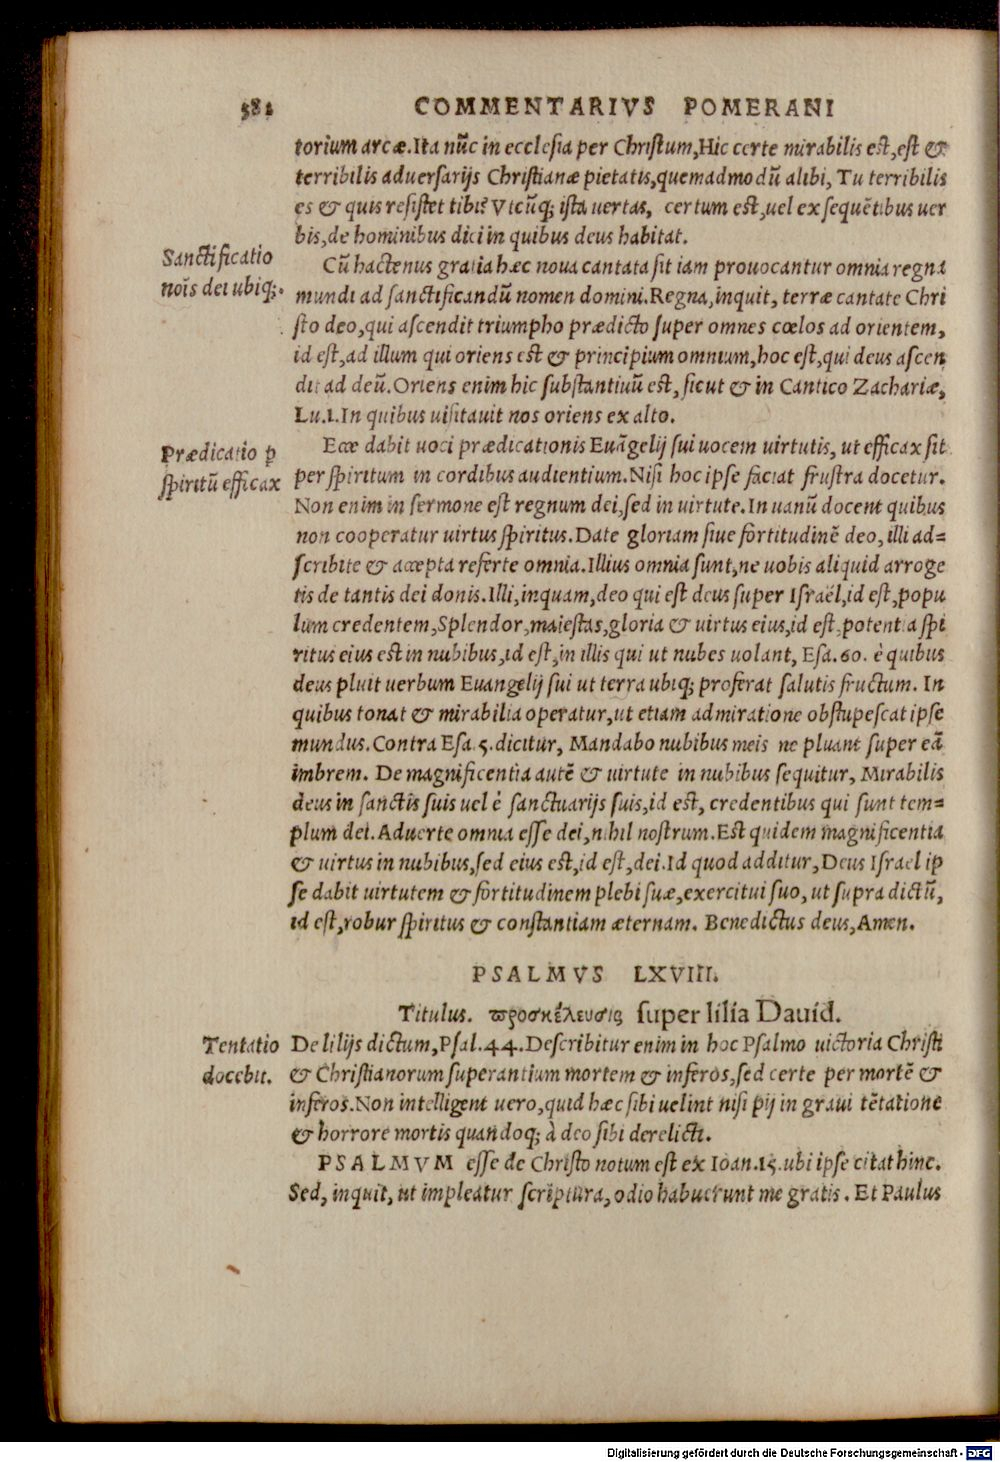 382 COMMENTARIVS POMERANI
torium arcæ. Ita nũc in ecclesia per Christum, Hic certe mirabilis est, est &
terribilis aduersarijs Christianæ pietatis, quemadmodũ alibi, Tu terribilis
es & quis resistet tibi? Vtcũq; ista uertas, certum est, uel ex sequẽtibus uer
bis, de hominibus dici in quibus deus habitat.
Sanctificatio
nois dei ubiq;.
Cũ hactenus gratia hæc noua cantata sit iam prouocantur omnia regna
mundi ad sanctificandũ nomen domini. Regna, inquit, terræ cantate Chri
sto deo, qui ascendit triumpho prædicto super omnes cœlos ad orientem,
id est, ad illum qui oriens est & principium omnium, hoc est, qui deus ascen
dit ad deũ. Oriens enim hic substantiuũ est, sicut & in Cantico Zachariæ,
Lu.1. In quibus uisitauit nos oriens ex alto.
Prædicatio ꝑ
spiritũ efficax
Ecce dabit uoci prædicationis Euãgelij sui uocem uirtutis, ut efficax sit
per spiritum in cordibus audientium. Nisi hoc ipse faciat frustra docetur.
Non enim in sermone est regnum dei, sed in uirtute. In uanũ docent quibus
non cooperatur uirtus spiritus. Date gloriam siue fortitudinẽ deo, illi ad=
scribite & accepta referte omnia. Illius omnia sunt, ne uobis aliquid arroge
tis de tantis dei donis. Illi, inquam, deo qui est deus super Israël, id est, popu
lum credentem, Splendor, maiestas, gloria & uirtus eius, id est, potentia spi
ritus eius est in nubibus, id est, in illis qui ut nubes uolant, Esa.60. è quibus
deus pluit uerbum Euangelij sui ut terra ubiq; proferat salutis fructum. In
quibus tonat & mirabilia operatur, ut etiam admiratione obstupescat ipse
mundus. Contra Esa.5. dicitur, Mandabo nubibus meis ne pluant super eã
imbrem. De magnificentia autẽ & uirtute in nubibus sequitur, Mirabilis
deus in sanctis suis uel è sanctuarijs suis, id est, credentibus qui sunt tem=
plum dei. Aduerte omnia esse dei, nihil nostrum. Est quidem magnificentia
& uirtus in nubibus, sed eius est, id est, dei. Id quod additur, Deus Israel ip
se dabit uirtutem & fortitudinem plebi suæ, exercitui suo, ut supra dictũ,
id est, robur spiritus & constantiam æternam. Benedictus deus, Amen.
PSALMVS LXVIII.
Titulus. προσκέλευσις super lilia Dauid.
Tentatio
docebit.
De lilijs dictum, Psal.44. Describitur enim in hoc Psalmo uictoria Christi
& Christianorum superantium mortem & inferos, sed certe per mortẽ &
inferos. Non intelligent uero, quid hæc sibi uelint nisi pij in graui tẽtatione
& horrore mortis quandoq; à deo sibi derelicti.
PSALMVM esse de Christo notum est ex Ioan.15. ubi ipse citat hinc.
Sed, inquit, ut impleatur scriptura, odio habuerunt me gratis. Et Paulus
Digitalisierung gefördert durch die Deutsche Forschungsgemeinschaft - DFG